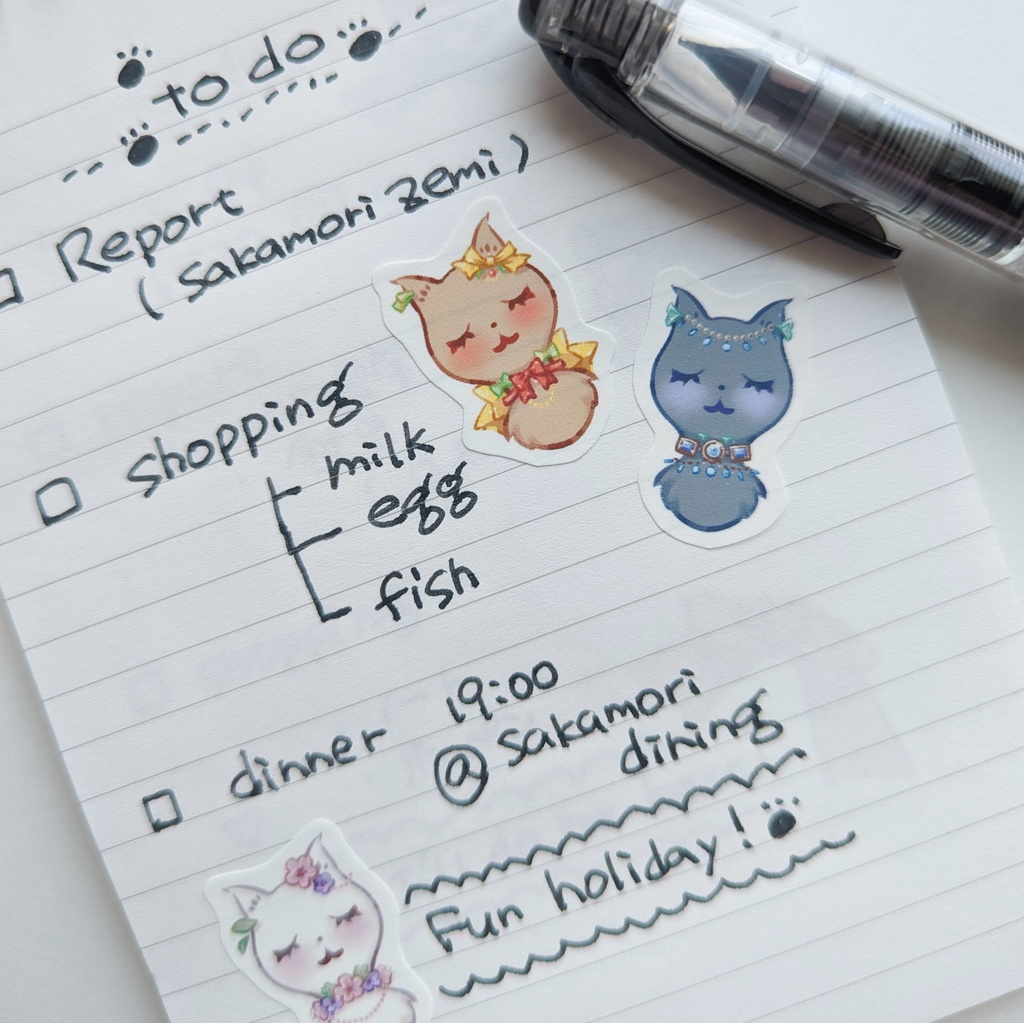 to do
Report
(Sakamori Zemi)
shopping
milk
egg
fish
dinner 19:00
@ sakamori
dining
Fun holiday!